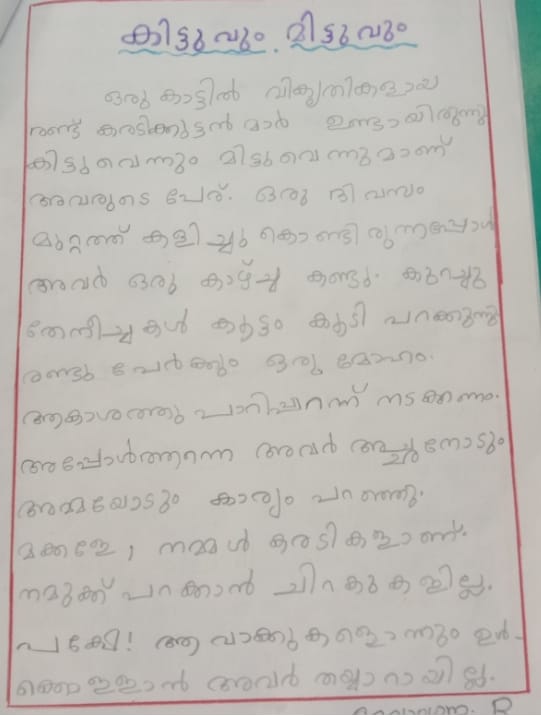 കിട്ടുവും മിട്ടുവും
ഒരു കാട്ടിൽ വികൃതികളായ
രണ്ട് കരടിക്കുട്ടൻ മാർ ഉണ്ടായിരുന്നു
കിട്ടുവെന്നും മിട്ടുവെന്നുമാണ്
അവരുടെ പേര്. ഒരു ദിവസം
മുറ്റത്ത് കളിച്ചു കൊണ്ടിരുന്നപ്പോൾ
അവർ ഒരു കാഴ്ച്ച കണ്ടു. കുറച്ചു
തേനീച്ചകൾ കൂട്ടം കൂടി പറക്കുന്നു
രണ്ടു പേർക്കും ഒരു മോഹം.
ആകാശത്തു പാറിപ്പറന്ന് നടക്കണം.
അപ്പോൾത്തന്നെ അവർ അച്ഛനോടും
അമ്മയോടും കാര്യം പറഞ്ഞു.
മക്കളേ, നമ്മൾ കരടികളാണ്.
നമുക്ക് പറക്കാൻ ചിറകുകളില്ല.
പക്ഷേ! ആ വാക്കുകളൊന്നും ഉൾ-
ക്കൊള്ളാൻ അവർ തയ്യാറായില്ല.